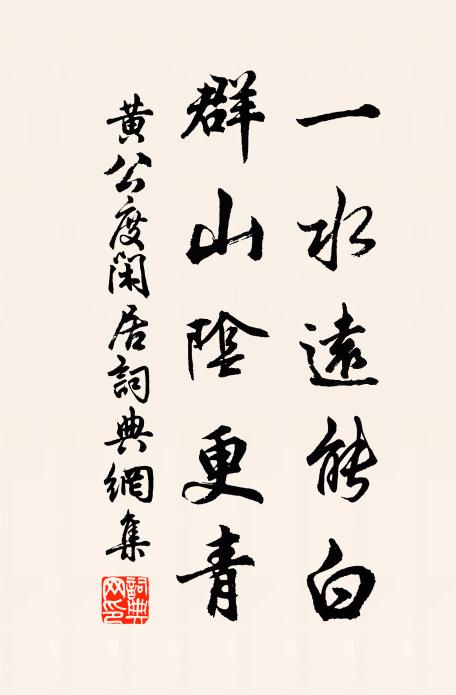 一水遠能白
群山陰更青
黄公度閑居詞典網集
詞典網印